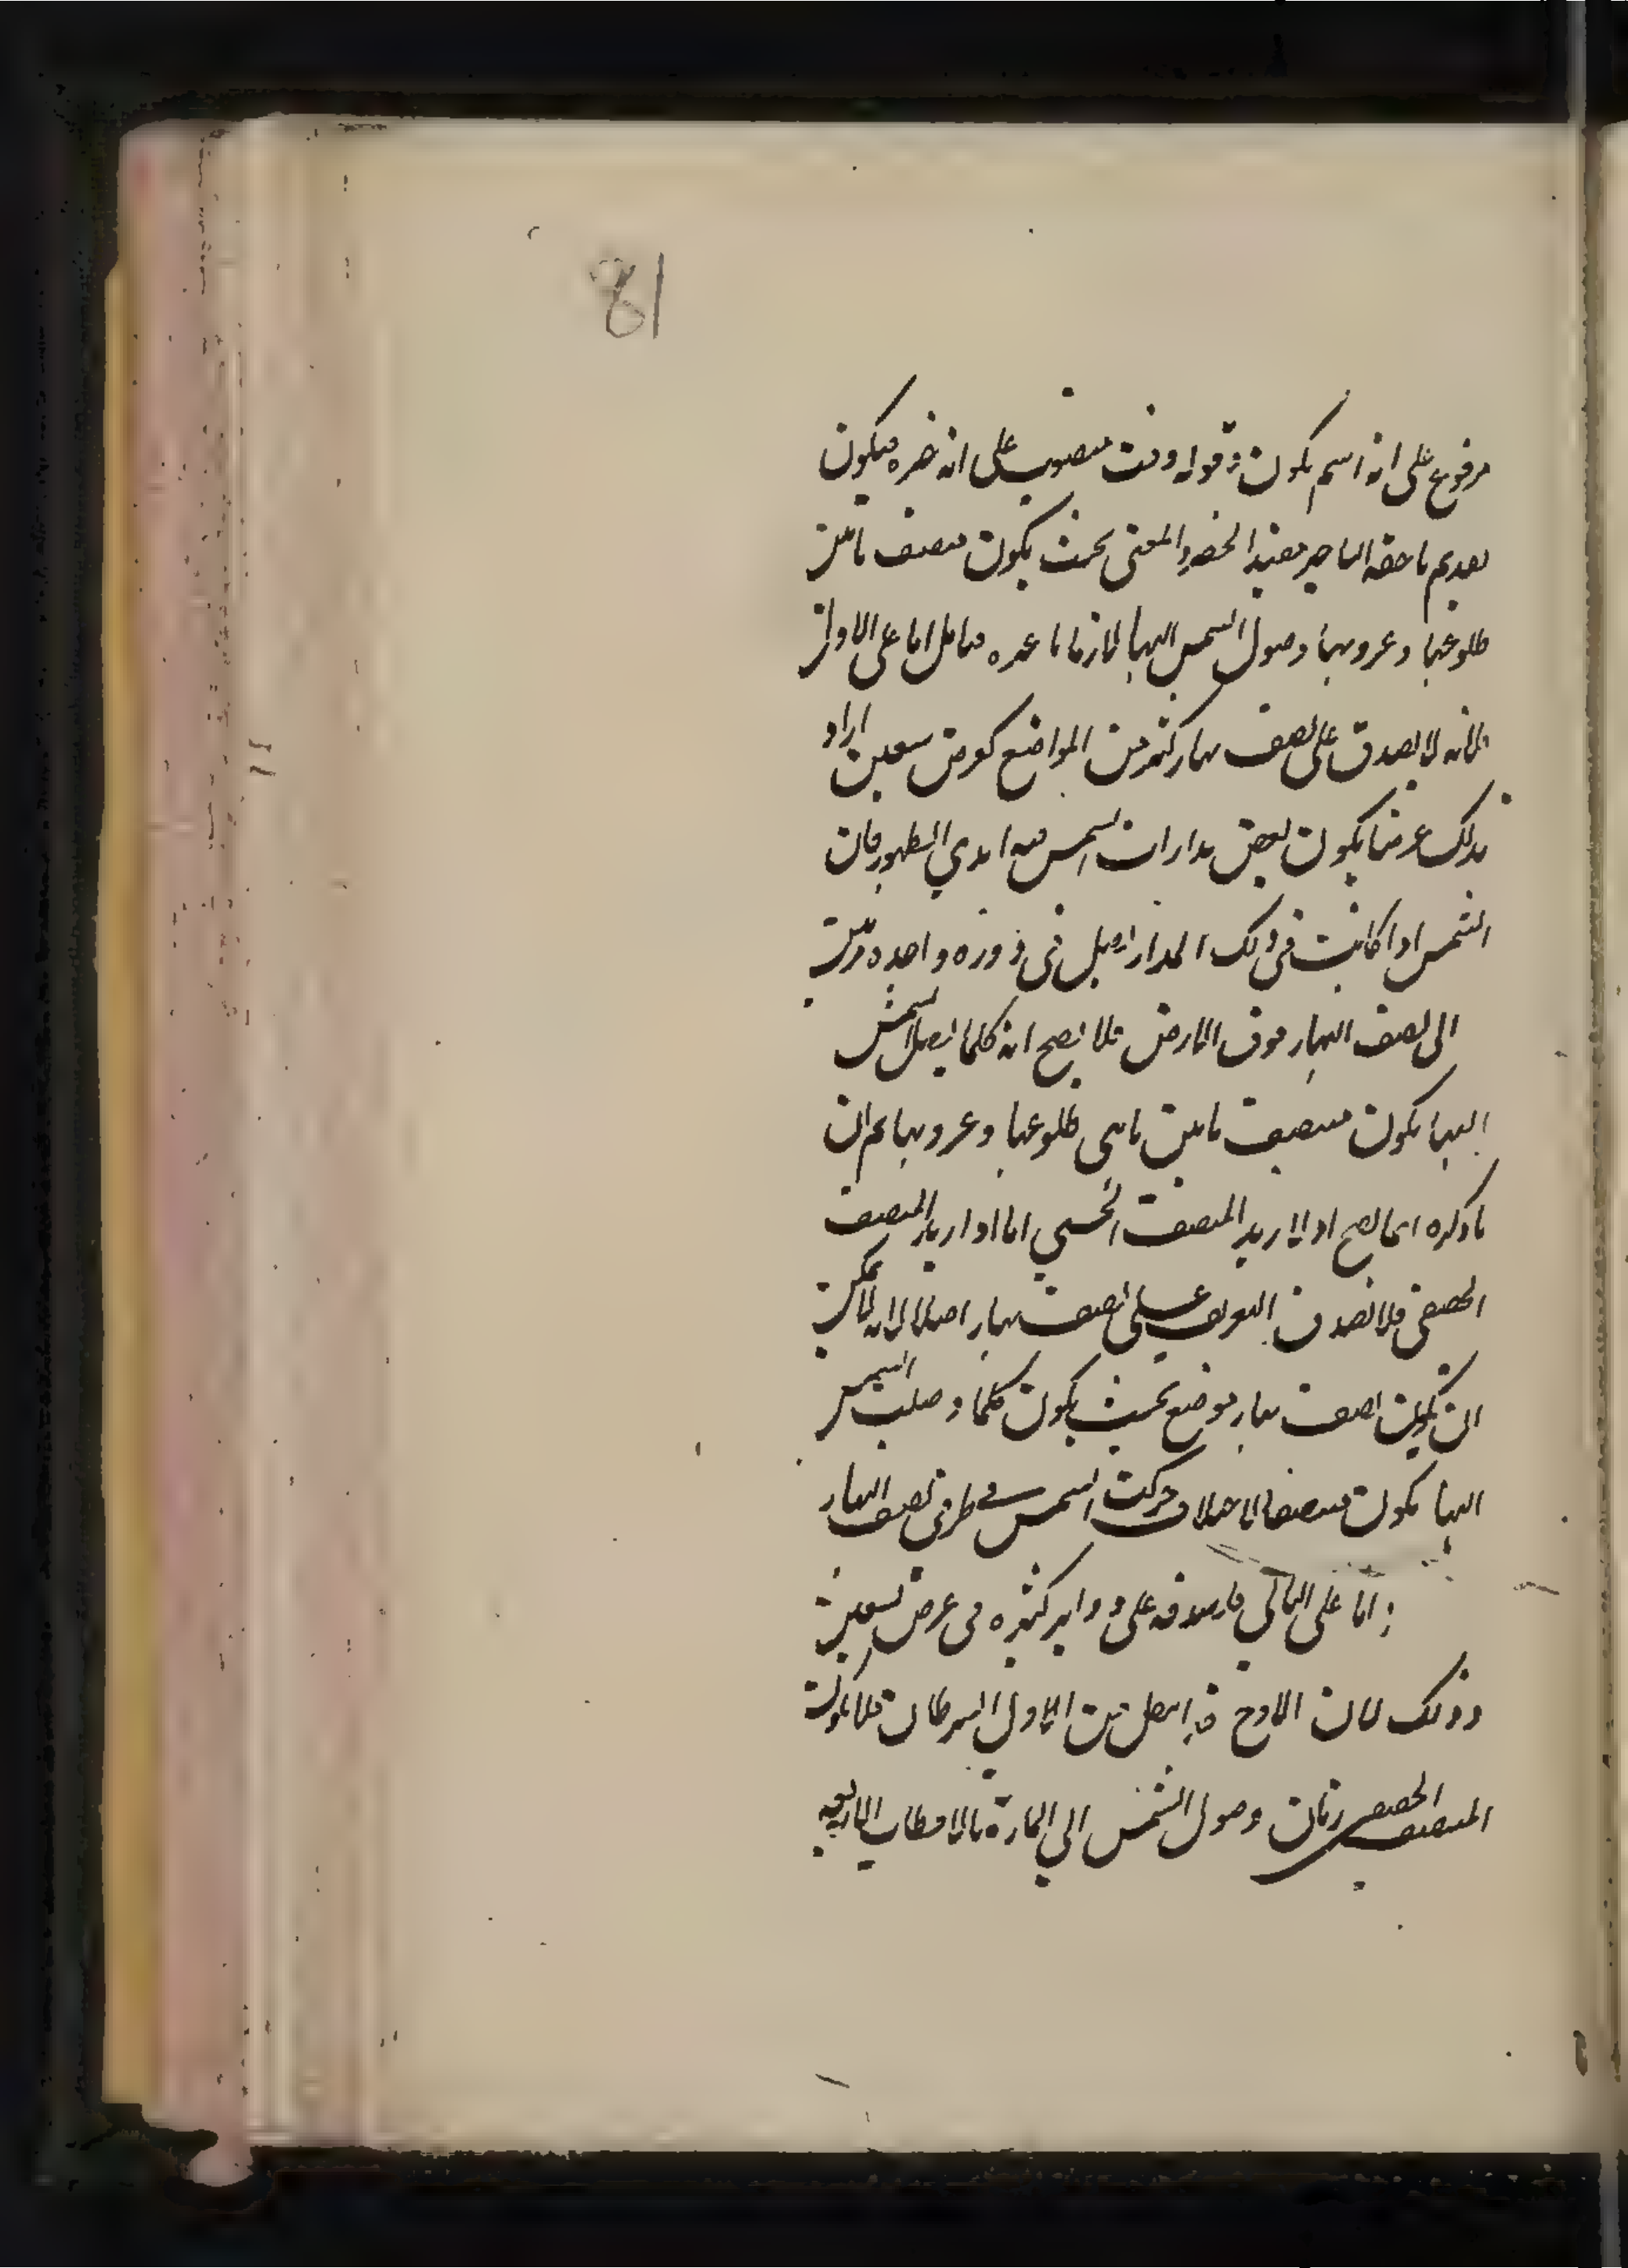 81
مرفوع على انه اسم يكون وقوله وقت منصوب على انه خبره فيكون
تقديم ما حقه التاخير مفيدا للحصر والمعنى بحيث يكون منصف ما بين
طلوعها وغروبها وصول الشمس اليها لا زمانا عده فتامل اما على الاول
فلانه لا يصدق على نصف نهار كثير من المواضع كعرض سبعين اراد
بذلك عرضا يكون بعض مدارات الشمس فيه ابدي الظهور فان
الشمس اذا كانت في ذلك المدار تصل في دورة واحدة مرتين
الى نصف النهار فوق الارض فلا يصح انه كلما تصل الشمس
اليها يكون منصف ما بين طلوعها وغروبها ثم ان
ما ذكره انما يصح اذا اريد المنصف الحسي اما اذا اريد المنصف
الحقيقي فلا يصدق التعريف على نصف نهار اصلا لانه لا يمكن
ان يكون نصف نهار موضع بحيث يكون كلما وصلت الشمس
اليها يكون منصفا لاختلاف حركت الشمس في طرفي نصف النهار
واما على الثاني فلصدقه على دواير كثيرة في عرض تسعين
وذلك لان الاوج قد انتقل من الاول السرطان فلا يكون
المنصف الحقيقي زمان وصول الشمس الي المارة بالاقطاب الاربعة